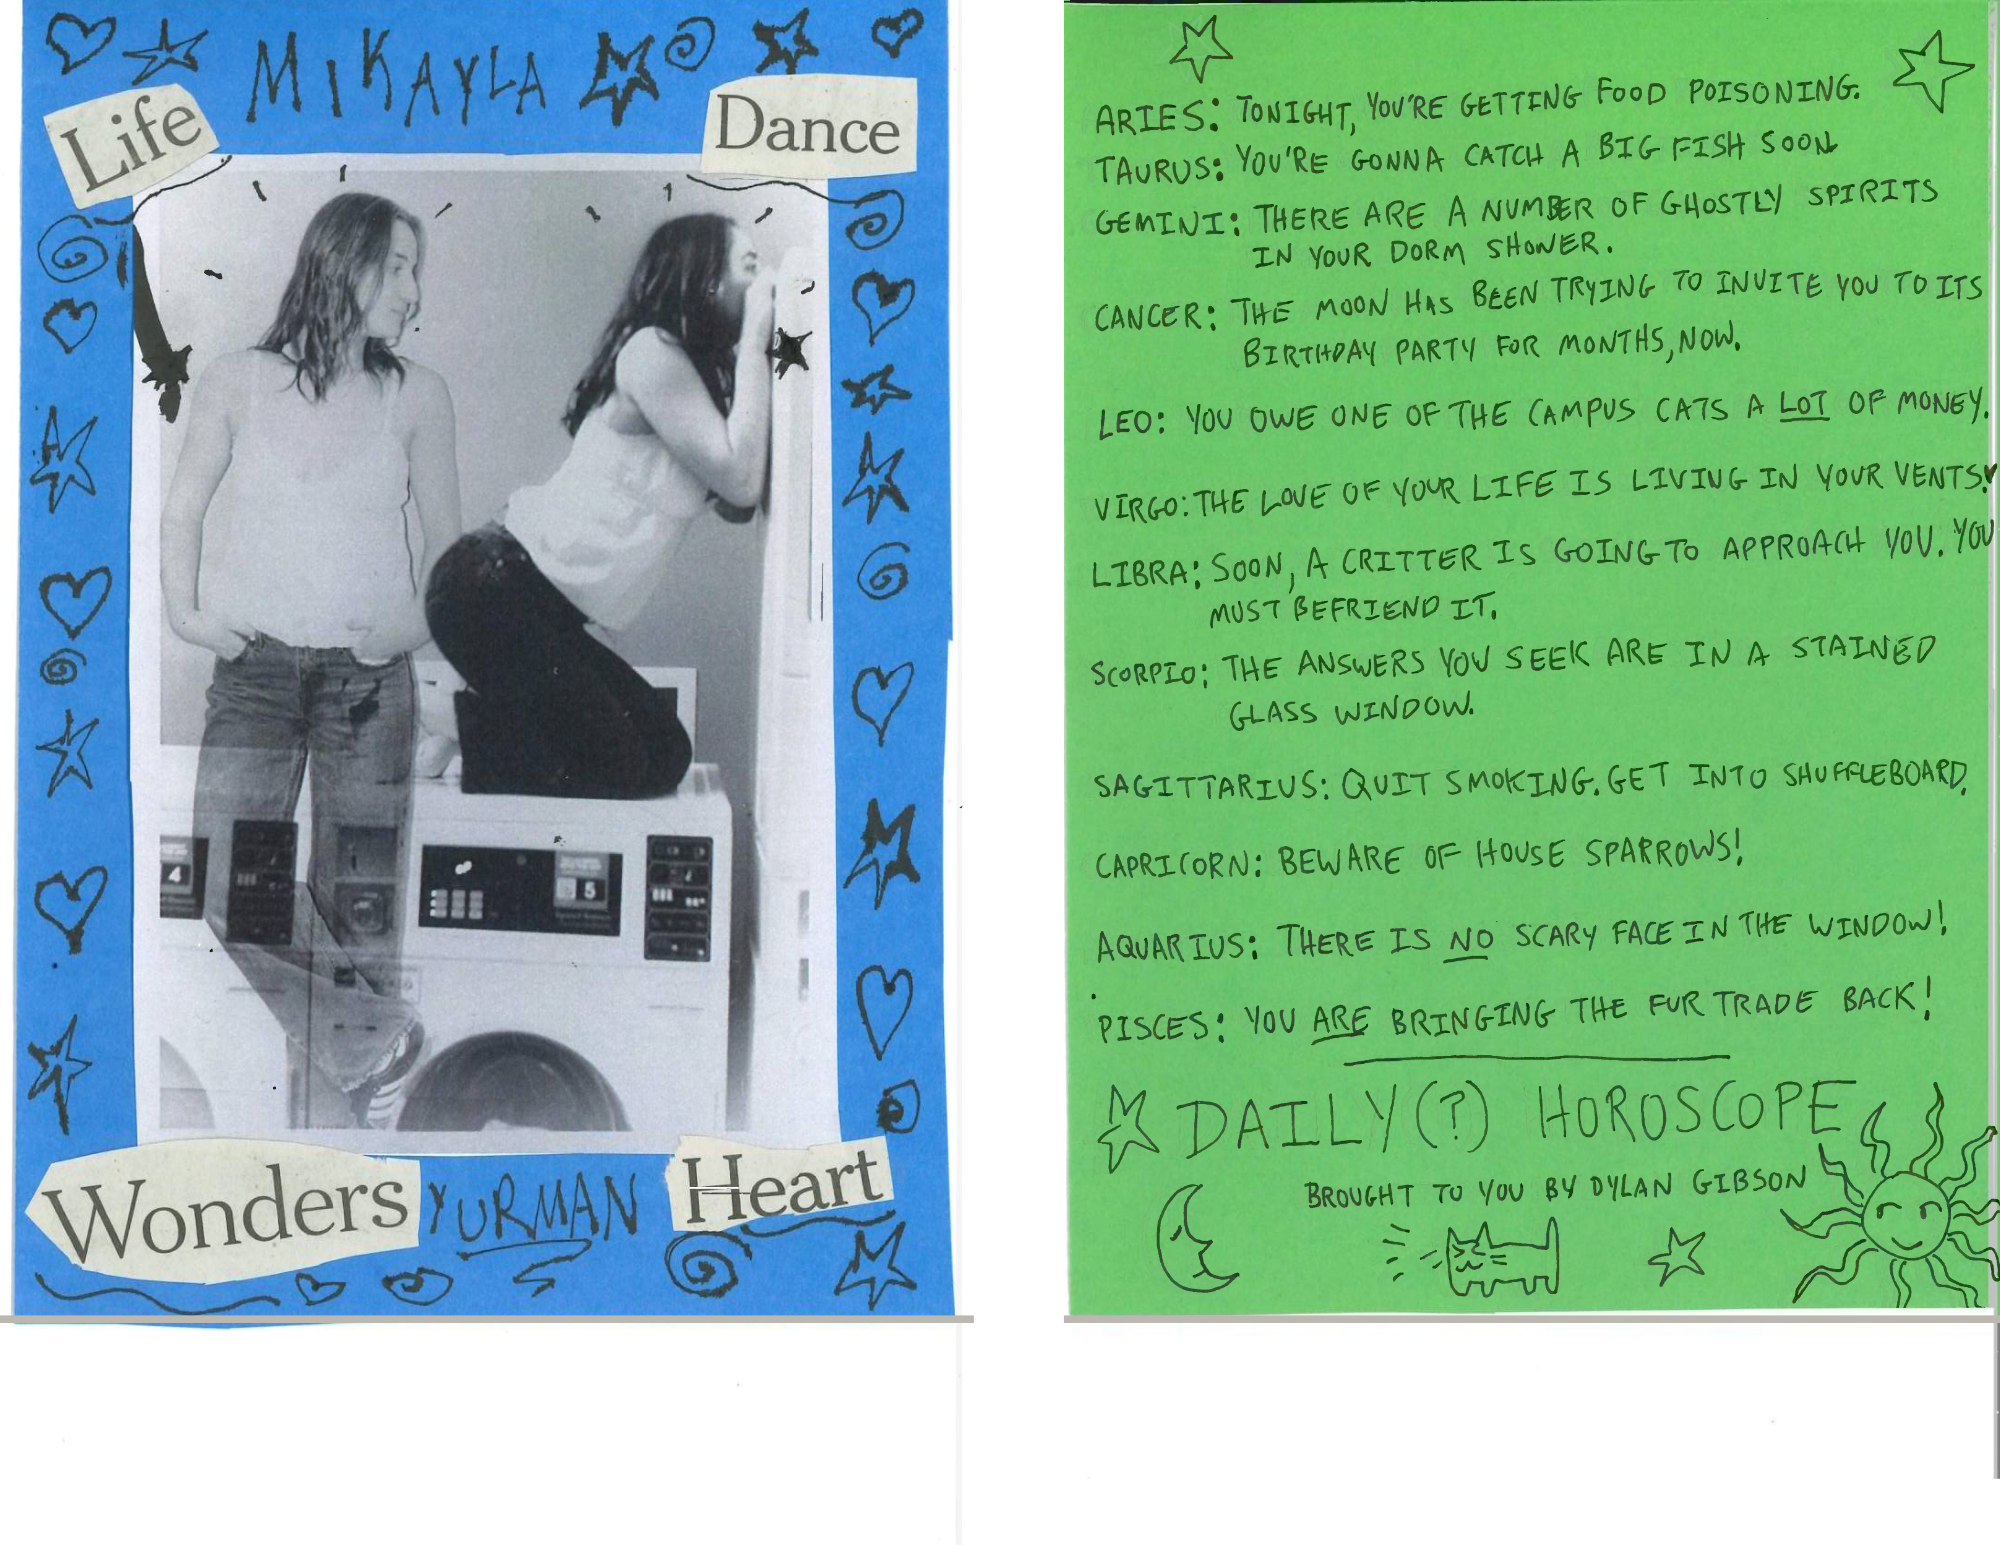 MIKAYLA
Life
Dance
4
5
Wonders
YURMAN
Heart
ARIES: TONIGHT, YOU'RE GETTING FOOD POISONING.
TAURUS: YOU'RE GONNA CATCH A BIG FISH SOON
GEMINI: THERE ARE A NUMBER OF GHOSTLY SPIRITS
IN YOUR DORM SHOWER.
CANCER: THE MOON HAS BEEN TRYING TO INVITE YOU TO ITS
BIRTHDAY PARTY FOR MONTHS, NOW.
LEO: YOU OWE ONE OF THE CAMPUS CATS A LOT OF MONEY.
VIRGO: THE LOVE OF YOUR LIFE IS LIVING IN YOUR VENTS!
LIBRA: SOON, A CRITTER IS GOING TO APPROACH YOU. YOU
MUST BEFRIEND IT.
SCORPIO: THE ANSWERS YOU SEEK ARE IN A STAINED
GLASS WINDOW.
SAGITTARIUS: QUIT SMOKING. GET INTO SHUFFLEBOARD.
CAPRICORN: BEWARE OF HOUSE SPARROWS!
AQUARIUS: THERE IS NO SCARY FACE IN THE WINDOW!
PISCES: YOU ARE BRINGING THE FUR TRADE BACK!
DAILY(?) HOROSCOPE
BROUGHT TO YOU BY DYLAN GIBSON